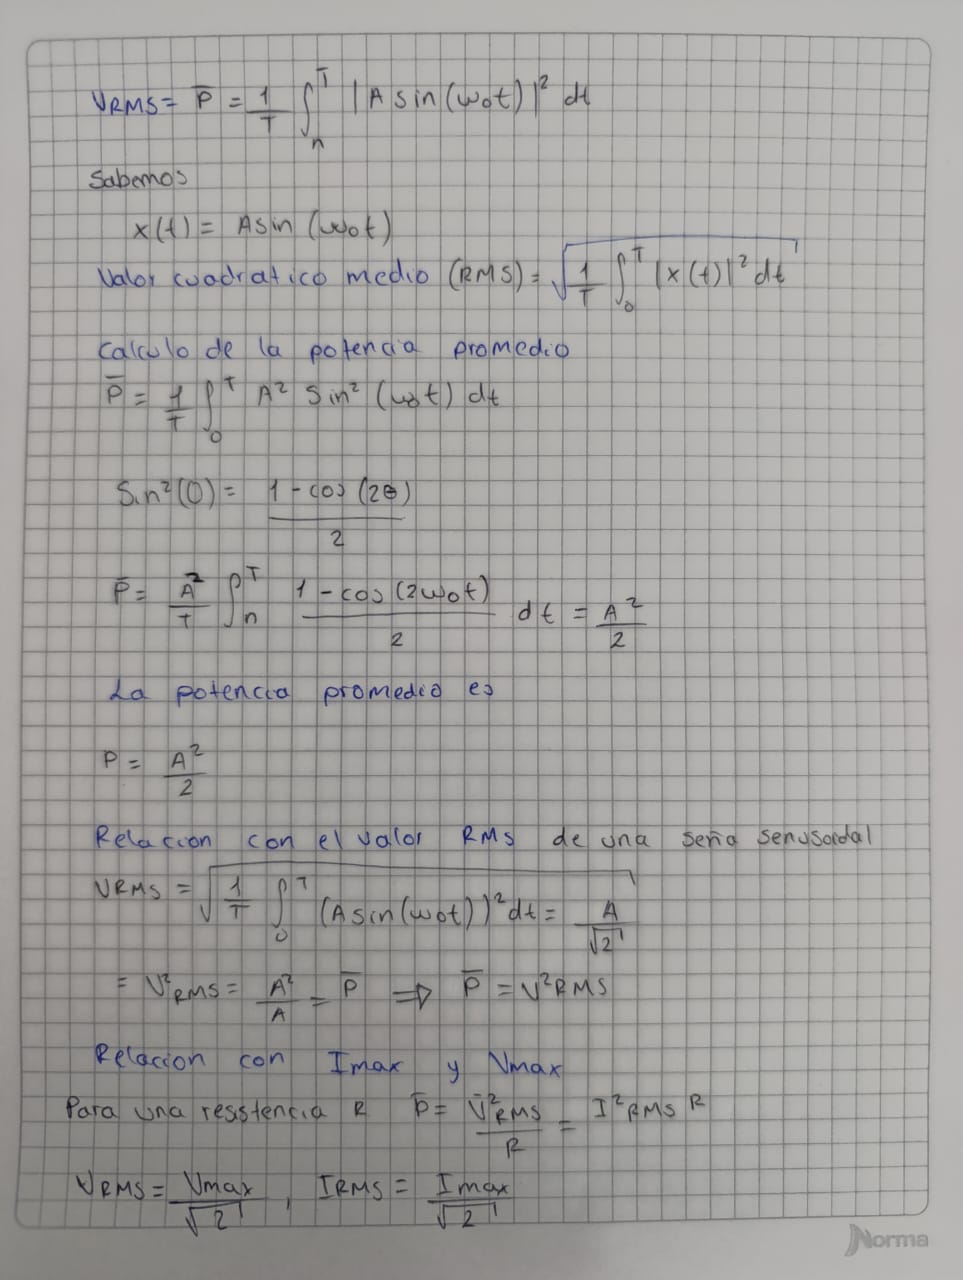 VRMS = P̅ = 1/T ∫ₙᵀ |A sin(ω₀t)|² dt
Sabemos
x(t) = A sin (ω₀t)
Valor cuadratico medio (RMS) = √(1/T ∫₀ᵀ |x(t)|² dt)
Calculo de la potencia promedio
P̅ = 1/T ∫₀ᵀ A² Sin² (ω₀t) dt
Sin²(0) = (1 - cos (2θ))/2
P̅ = A²/T ∫ₙᵀ (1 - cos (2ω₀t))/2 dt = A²/2
La potencia promedio es
P = A²/2
Relacion con el valor RMS de una seña senusoidal
VRMS = √(1/T ∫₀ᵀ (A sin(ω₀t))² dt) = A/√2
= V²RMS = A²/A = P̅ ⇒ P̅ = V²RMS
Relacion con Imax y Vmax
Para una resistencia R P̅ = V²RMS/R = I²RMS R
VRMS = Vmax/√2 , IRMS = Imax/√2
Norma